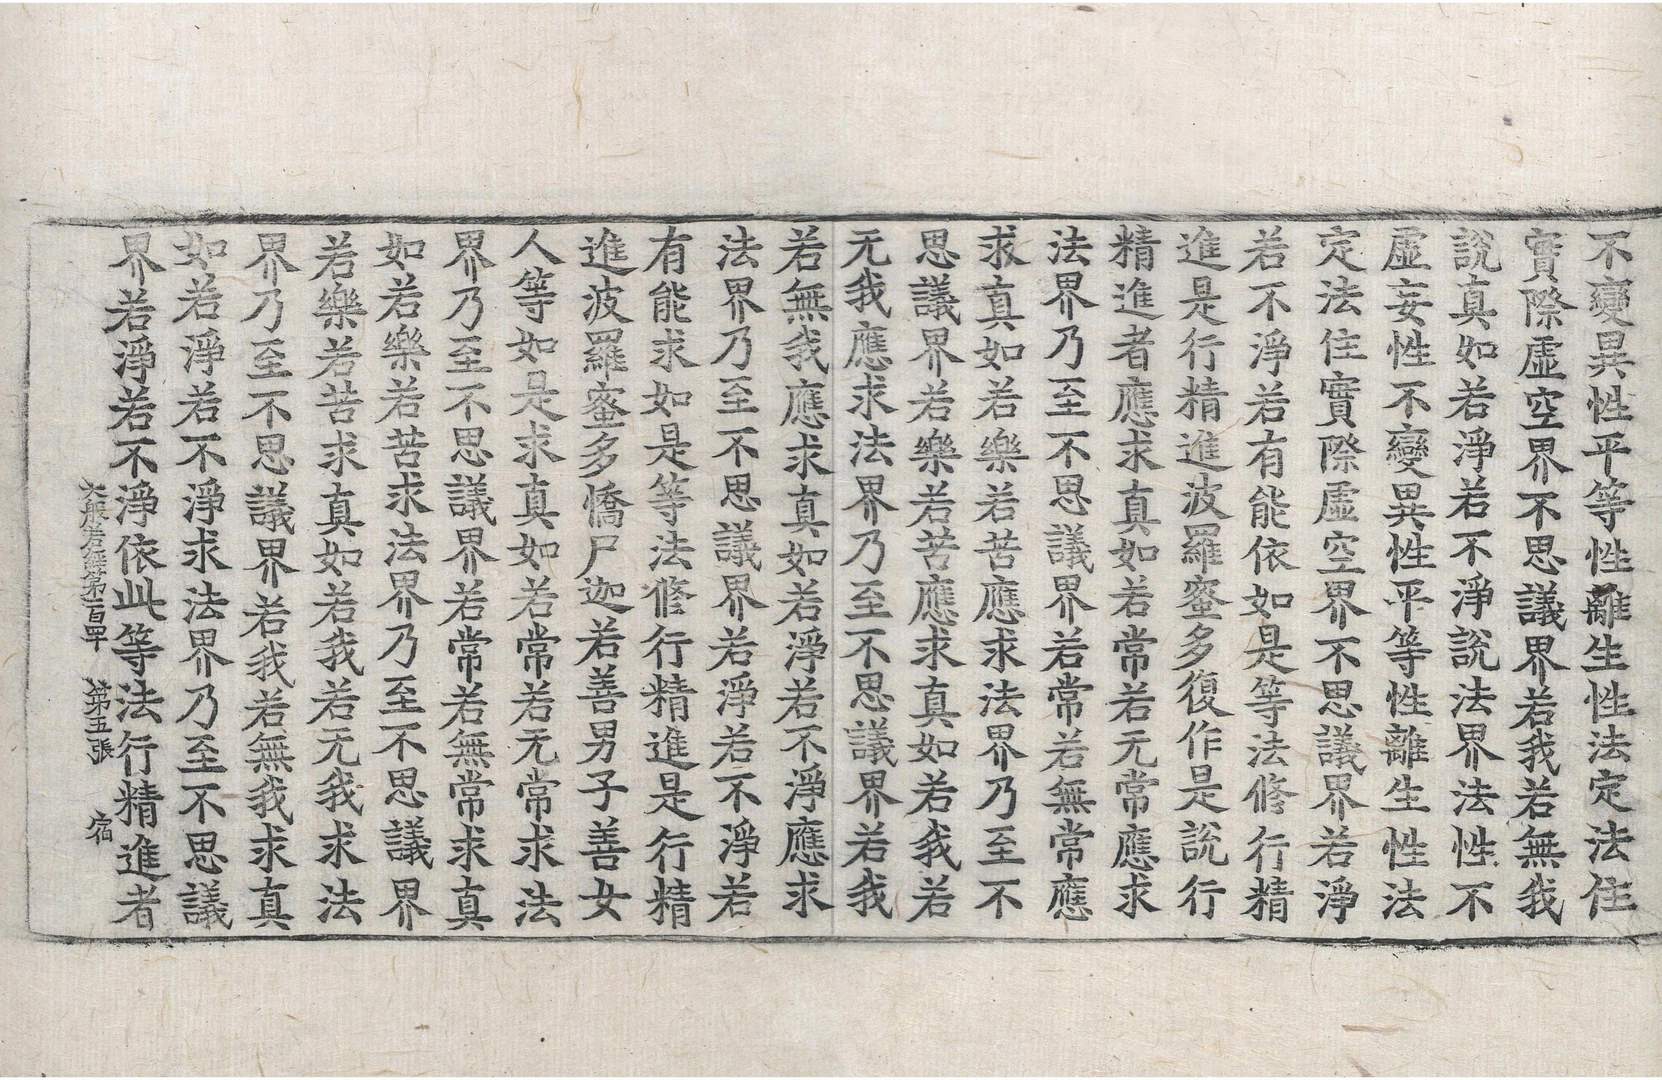 不變異性平等性離生性法定法住
實際虛空界不思議界若我若無我
說真如若淨若不淨說法界法性不
虛妄性不變異性平等性離生性法
定法住實際虛空界不思議界若淨
若不淨若有能依如是等法修行精
進是行精進波羅蜜多復作是說行
精進者應求真如若常若无常應求
法界乃至不思議界若常若無常應
求真如若樂若苦應求法界乃至不
思議界若樂若苦應求真如若我若
无我應求法界乃至不思議界若我
若無我應求真如若淨若不淨應求
法界乃至不思議界若淨若不淨若
有能求如是等法修行精進是行精
進波羅蜜多憍尸迦若善男子善女
人等如是求真如若常若无常求法
界乃至不思議界若常若無常求真
如若樂若苦求法界乃至不思議界
若樂若苦求真如若我若无我求法
界乃至不思議界若我若無我求真
如若淨若不淨求法界乃至不思議
界若淨若不淨依此等法行精進者
大般若經第一百四十 第五張 宿